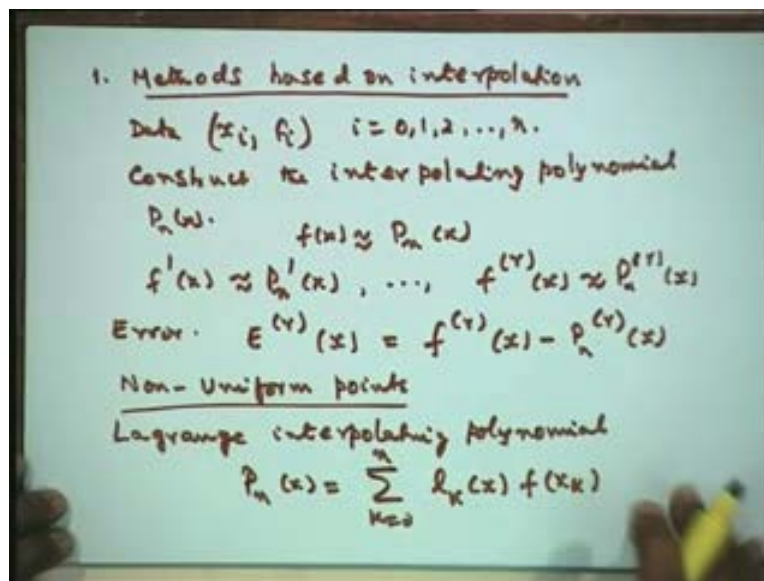 1. Methods based on interpolation
Data (xi, fi) i = 0,1,2,...,n.
Construct the interpolating polynomial
Pn(x). f(x) ≈ Pn(x)
f'(x) ≈ Pn'(x), ..., f^(r)(x) ≈ Pn^(r)(x)
Error. E^(r)(x) = f^(r)(x) - Pn^(r)(x)
Non-Uniform points
Lagrange interpolating polynomial
Pn(x) = Σ_{k=0}^{n} lk(x) f(xk)